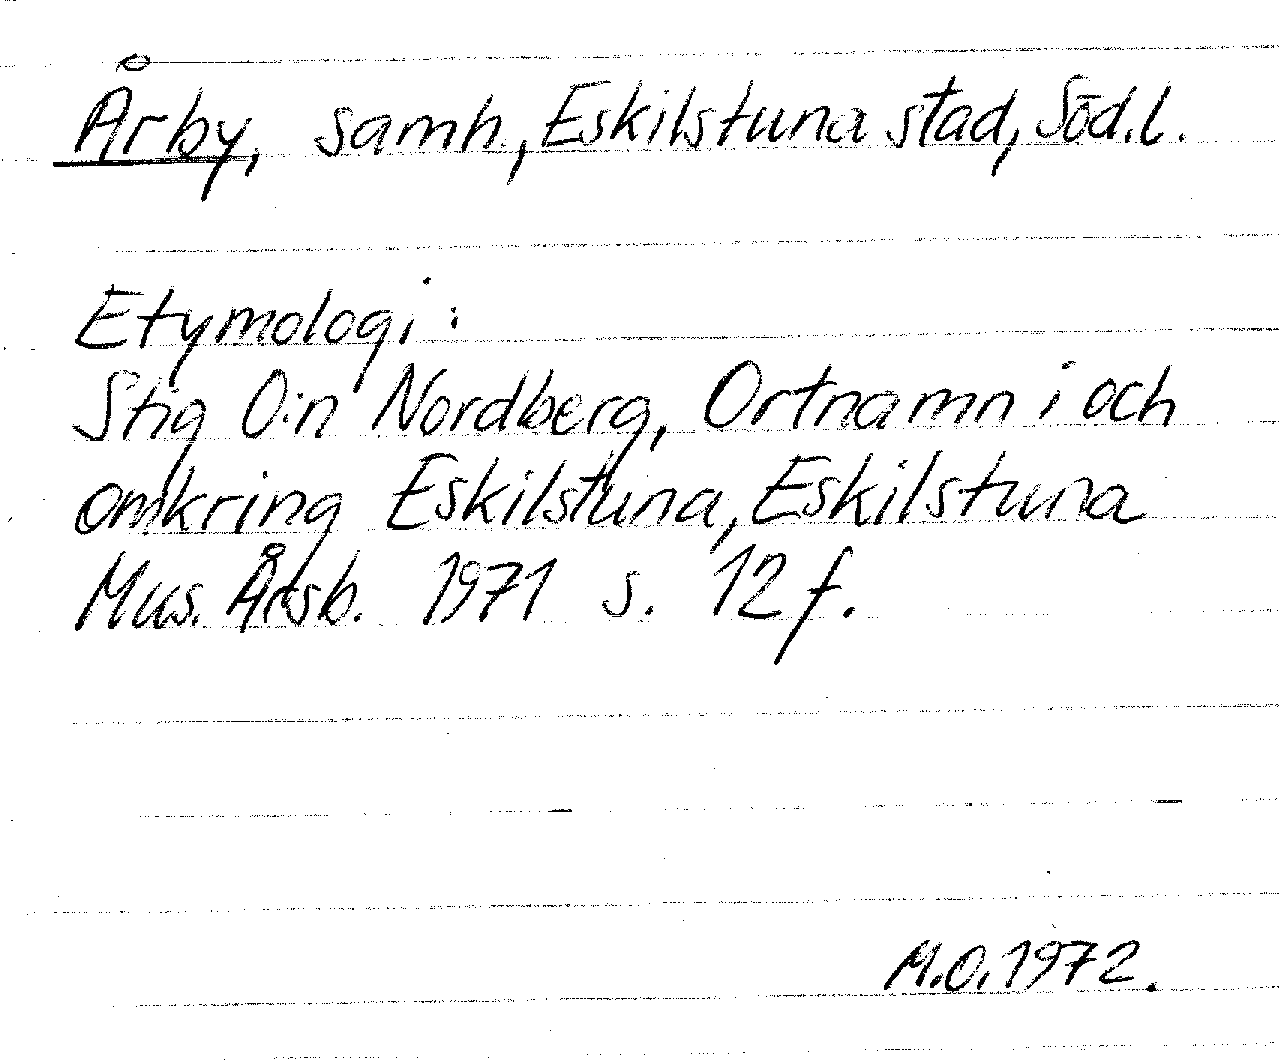 Årby, samh., Eskilstuna stad, Söd.l.
Etymologi:
Stig O:n Nordberg, Ortnamn i och
omkring Eskilstuna, Eskilstuna
Mus. Årsb. 1971 s. 12 f.
M.O. 1972.